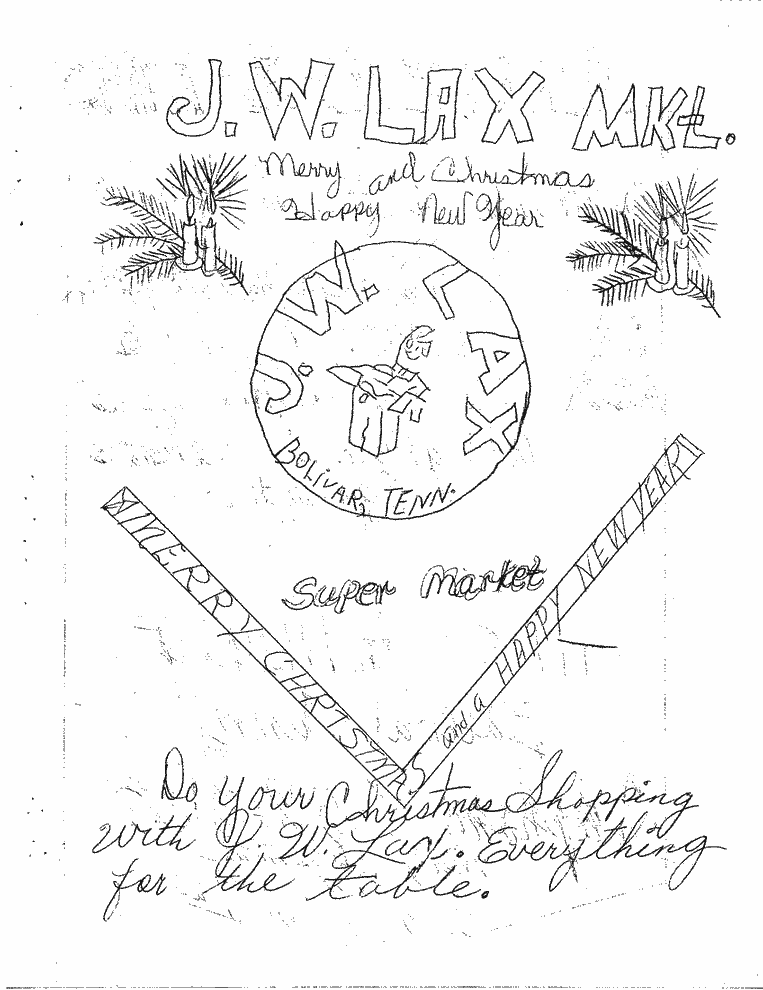 J.W. LAX MKt.
Merry and Christmas
Happy New Year
J.W. LAX
BOLIVAR, TENN.
Super Market
MERRY CHRISTMAS
and a HAPPY NEW YEAR!
Do your Christmas Shopping
with J. W. Lax. Everything
for the table.